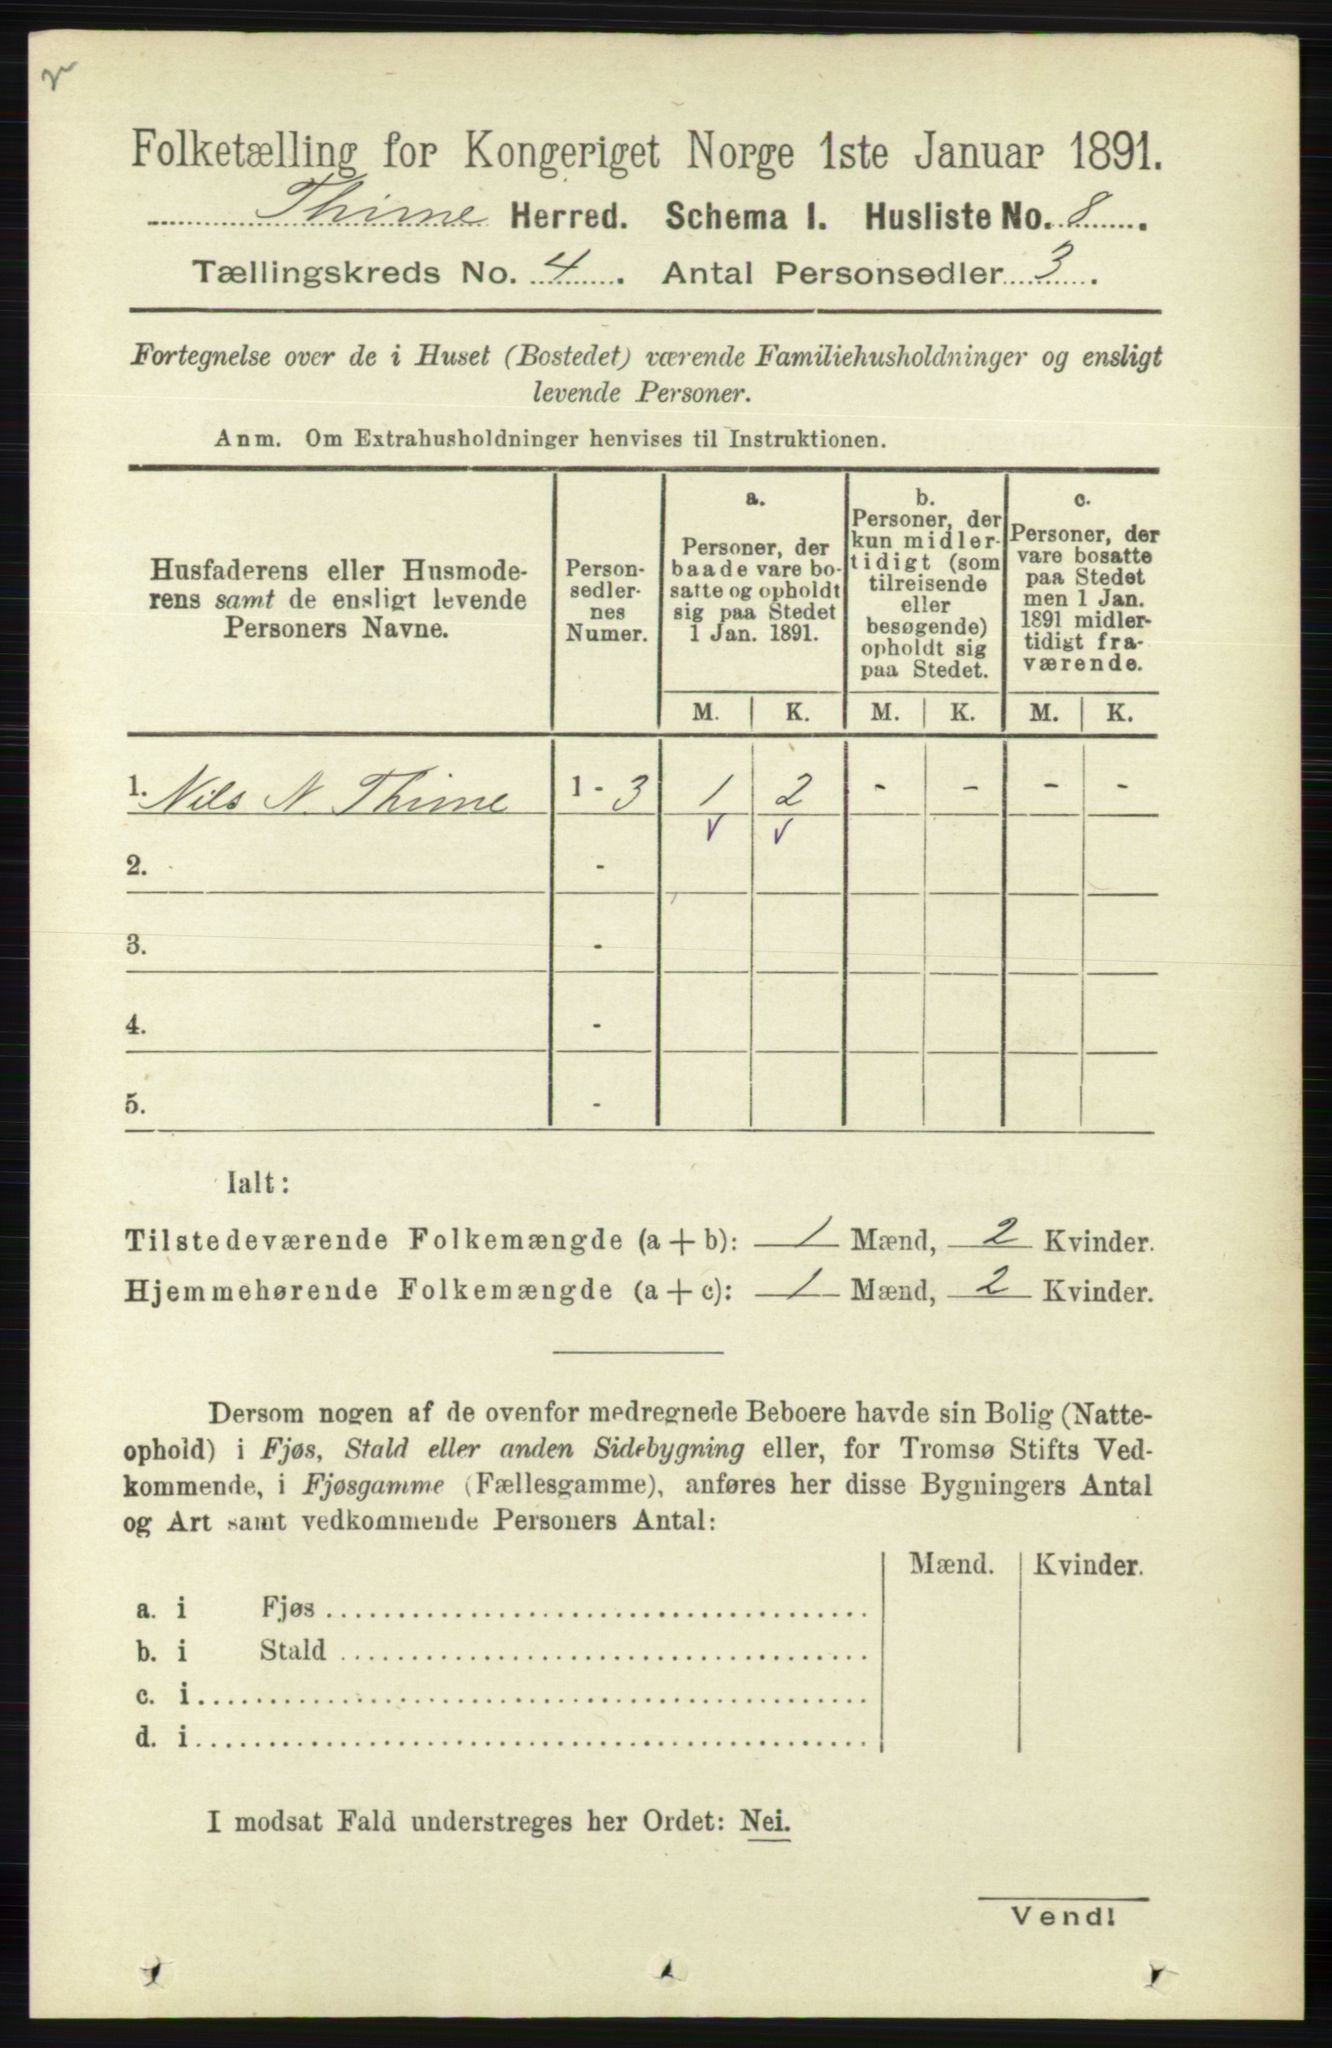 Folketælling for Kongeriget Norge 1ste Januar 1891.
Thime Herred. Schema I. Husliste No. 8.
Tællingskreds No. 4. Antal Personsedler 3.
Fortegnelse over de i Huset (Bostedet) værende Familiehusholdninger og ensligt
levende Personer.
Anm. Om Extrahusholdninger henvises til Instruktionen.
Husfaderens eller Husmode-
rens samt de ensligt levende
Personers Navne.
Person-
sedler-
nes
Numer.
a.
Personer, der
baade vare bo-
satte og opholdt
sig paa Stedet
1 Jan. 1891.
b.
Personer, der
kun midler-
tidigt (som
tilreisende
eller
besøgende)
opholdt sig
paa Stedet.
c.
Personer, der
vare bosatte
paa Stedet
men 1 Jan.
1891 midler-
tidigt fra-
værende.
M. K. M. K. M. K.
1. Nils N. Thime 1 - 3 1 2 - - - -
2. -
3. -
4. -
5. -
Ialt:
Tilstedeværende Folkemængde (a + b): 1 Mænd, 2 Kvinder.
Hjemmehørende Folkemængde (a + c): 1 Mænd, 2 Kvinder.
Dersom nogen af de ovenfor medregnede Beboere havde sin Bolig (Natte-
ophold) i Fjøs, Stald eller anden Sidebygning eller, for Tromsø Stifts Ved-
kommende, i Fjøsgamme (Fællesgamme), anføres her disse Bygningers Antal
og Art samt vedkommende Personers Antal:
Mænd. Kvinder.
a. i Fjøs
b. i Stald
c. i
d. i
I modsat Fald understreges her Ordet: Nei.
Vend!